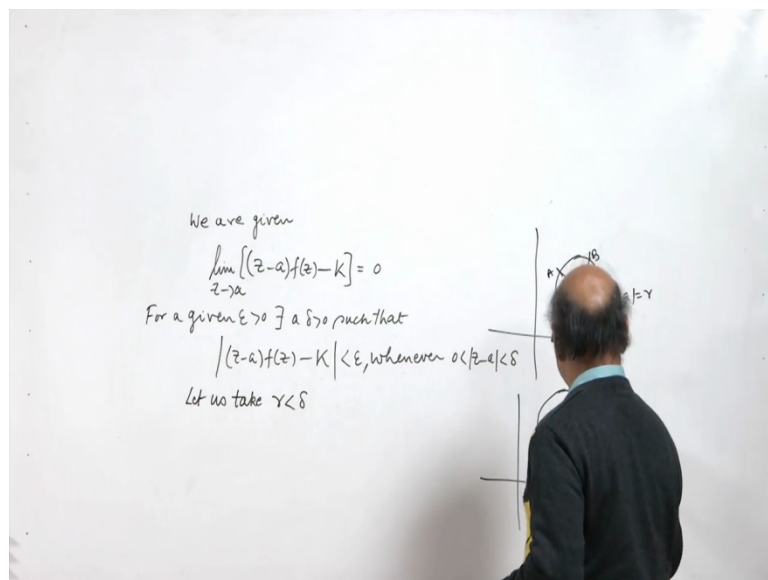 We are given
lim [(z-a)f(z)-K] = 0
z→a
For a given ε>0 ∃ a δ>0 such that
|(z-a)f(z)-K|<ε, whenever 0<|z-a|<δ
Let us take r<δ
A
B
a|=r